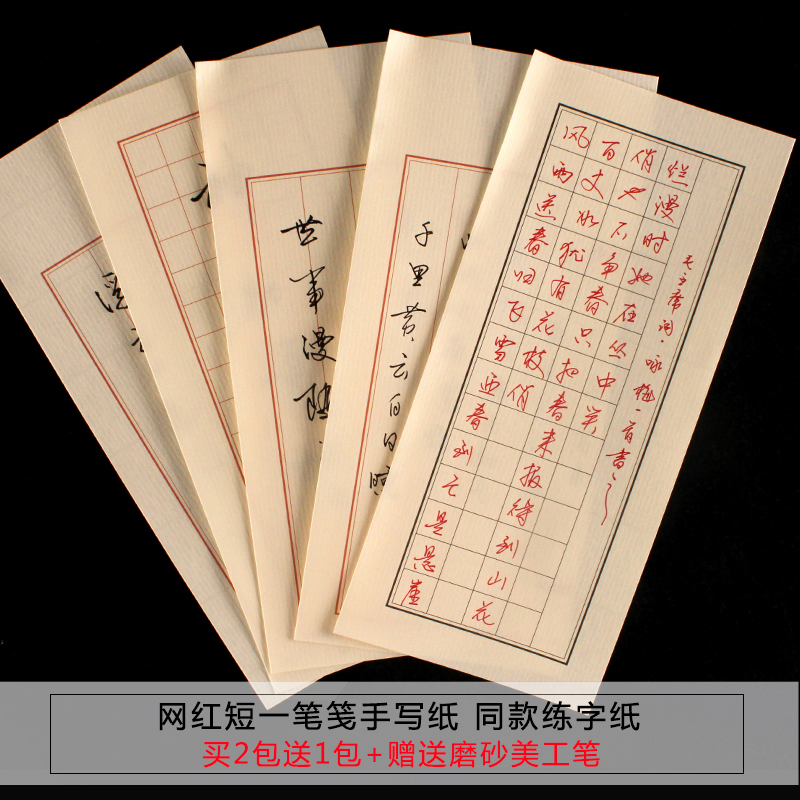 世事漫随
千里黄云白日曛
风雨送春归飞雪迎春到已是悬崖
百丈冰犹有花枝俏
俏也不争春只把春来报待到山花
烂漫时她在丛中笑
毛主席词·咏梅一首书
网红短一笔笺手写纸 同款练字纸
买2包送1包+赠送磨砂美工笔